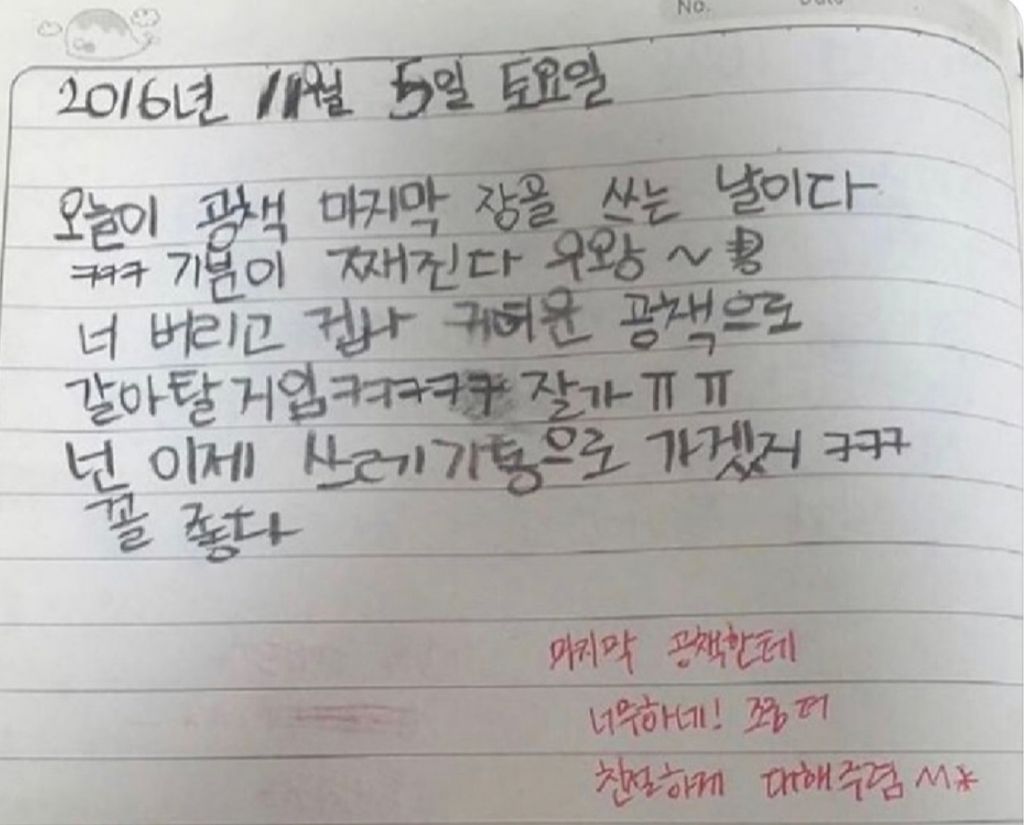 No.
2016년 11월 5일 토요일
오늘이 공책 마지막 장을 쓰는 날이다
ㅋㅋㅋ 기분이 째진다 우왕~
너 버리고 겁나 귀여운 공책으로
갈아탈거임ㅋㅋㅋㅋㅋ 잘가ㅠㅠ
넌 이제 쓰레기통으로 가겠지 ㅋㅋㅋ
꼴 좋다
마지막 공책한테
너무하네! 조금 더
친절하게 대해주렴 ^^*